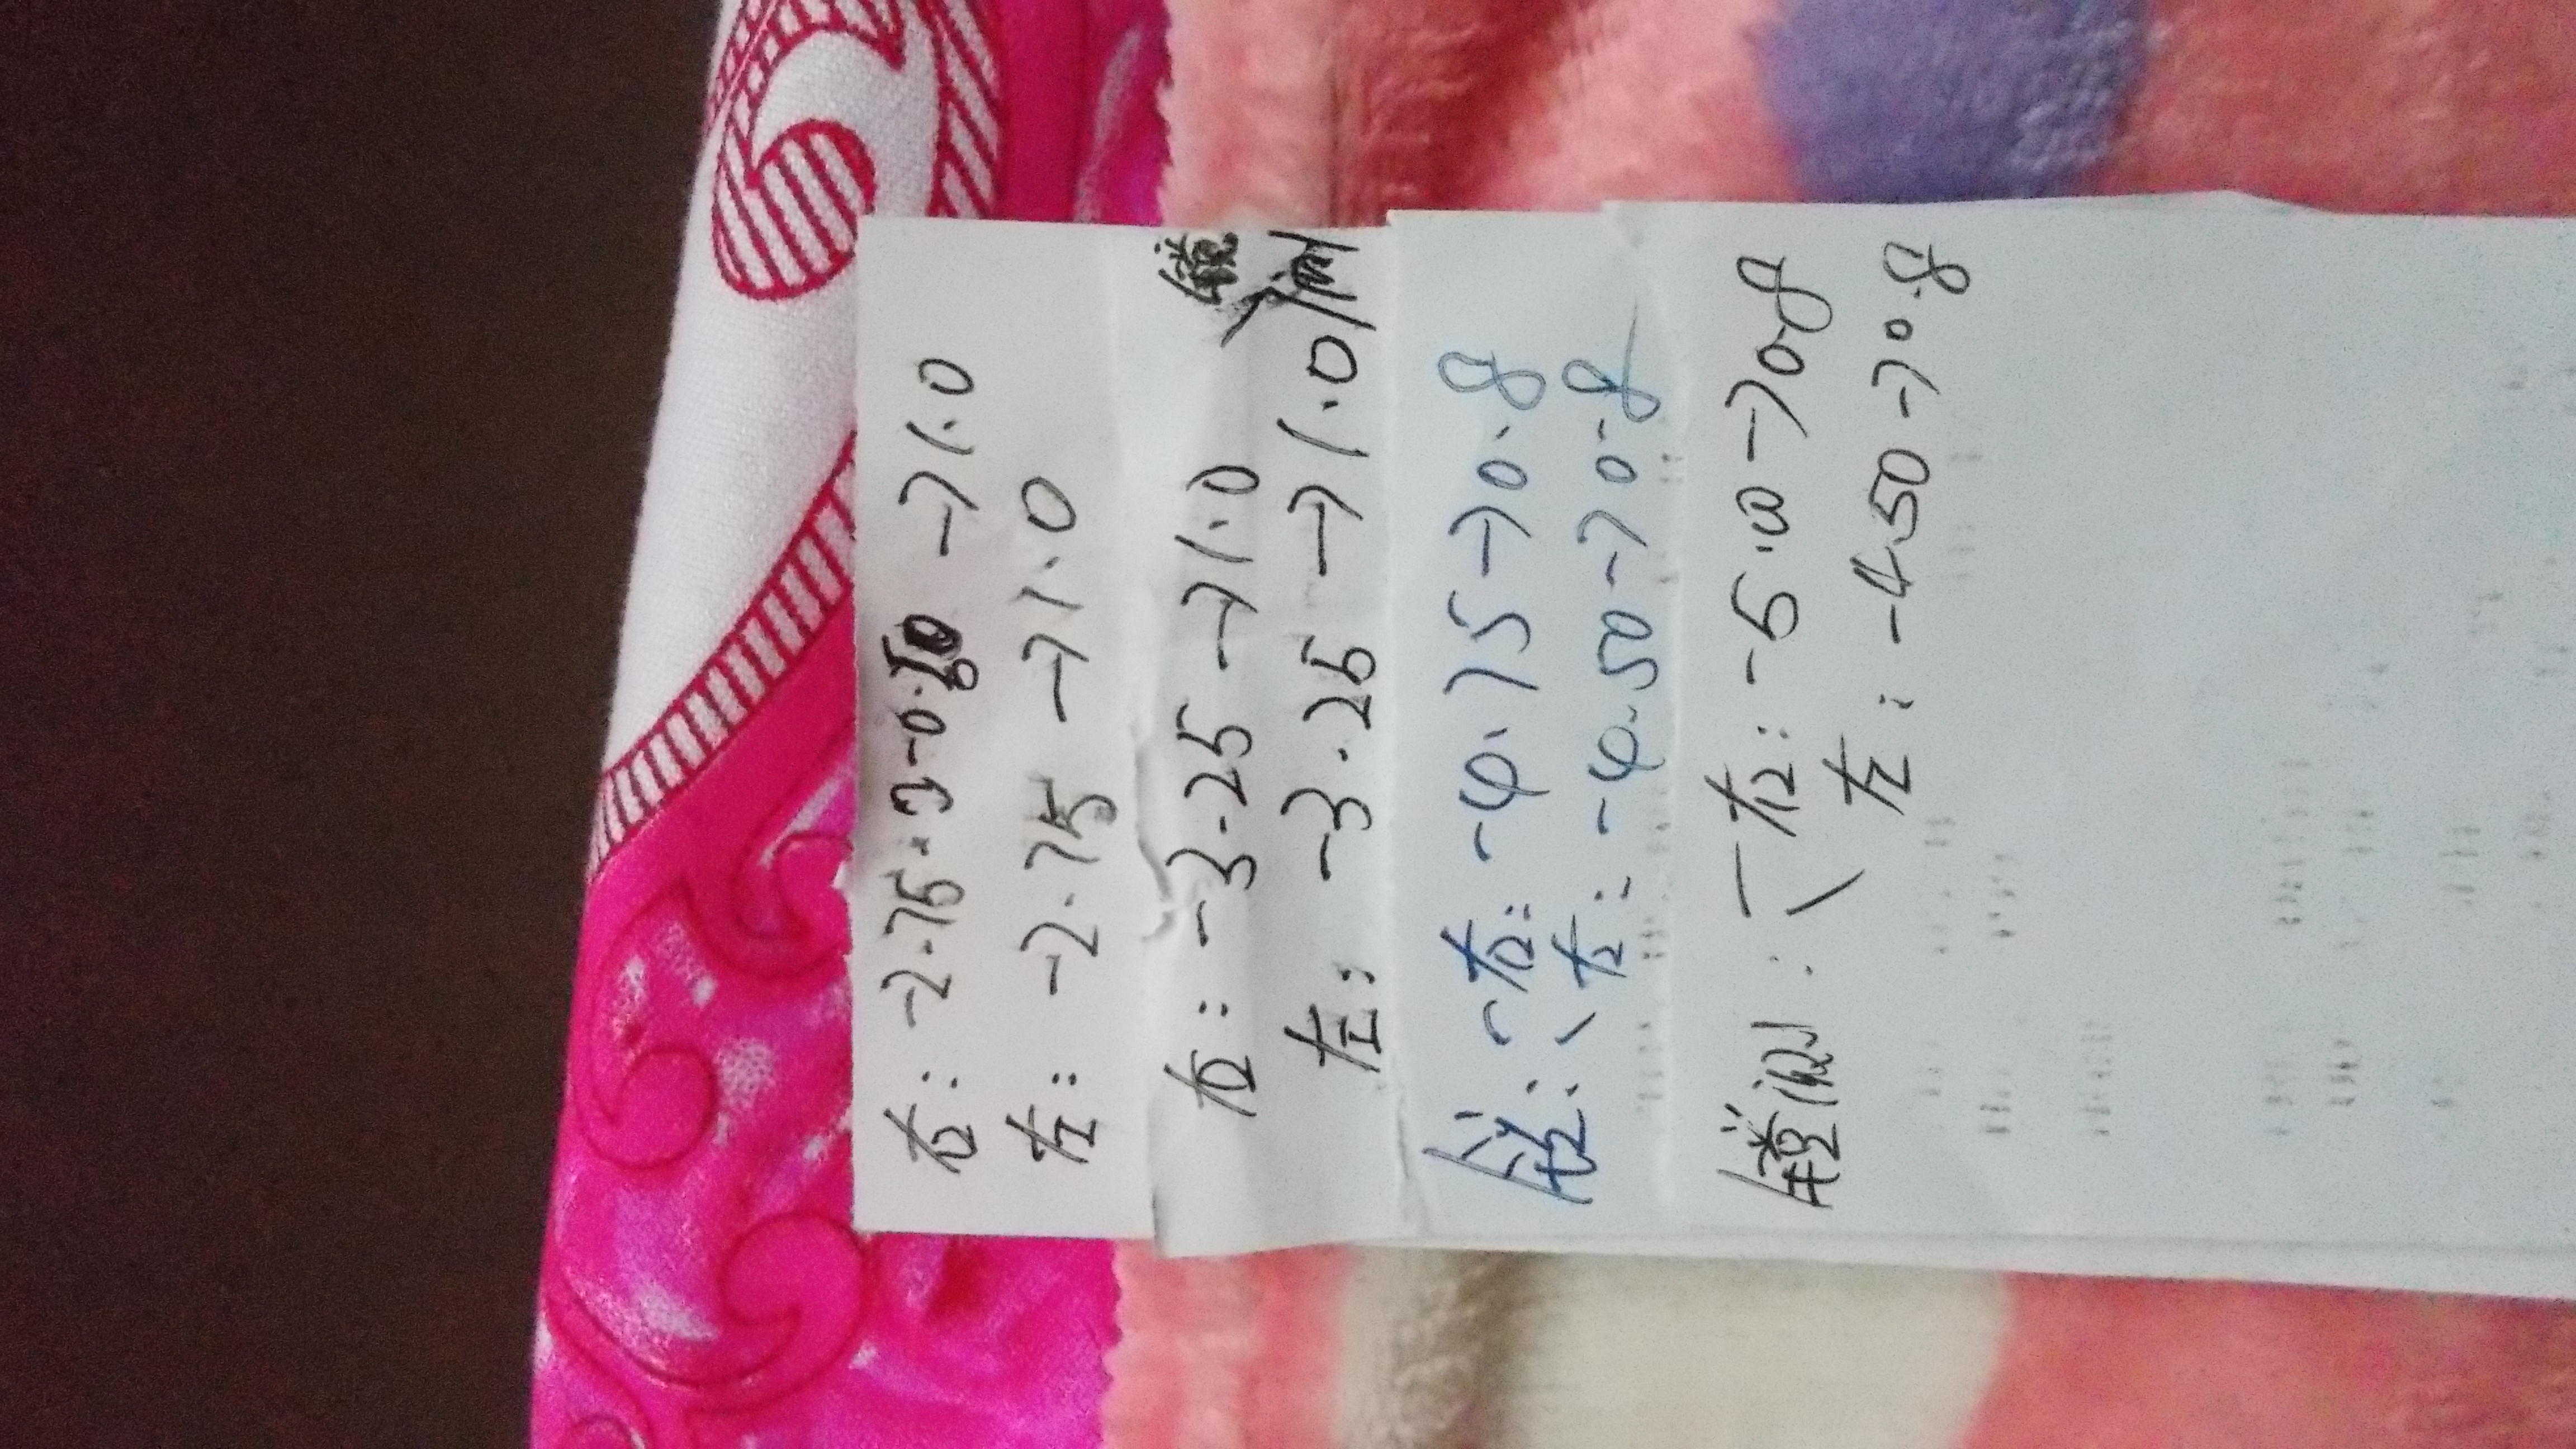 右: -2.75 -0.50 →1.0
左: -2.75 →1.0
右: -3.25 →1.0
左: -3.25 →1.0
镜: 右: -4.75 →0.8
左: -4.50 →0.8
镜测: 右: -5.00 →0.8
左: -4.50 →0.8